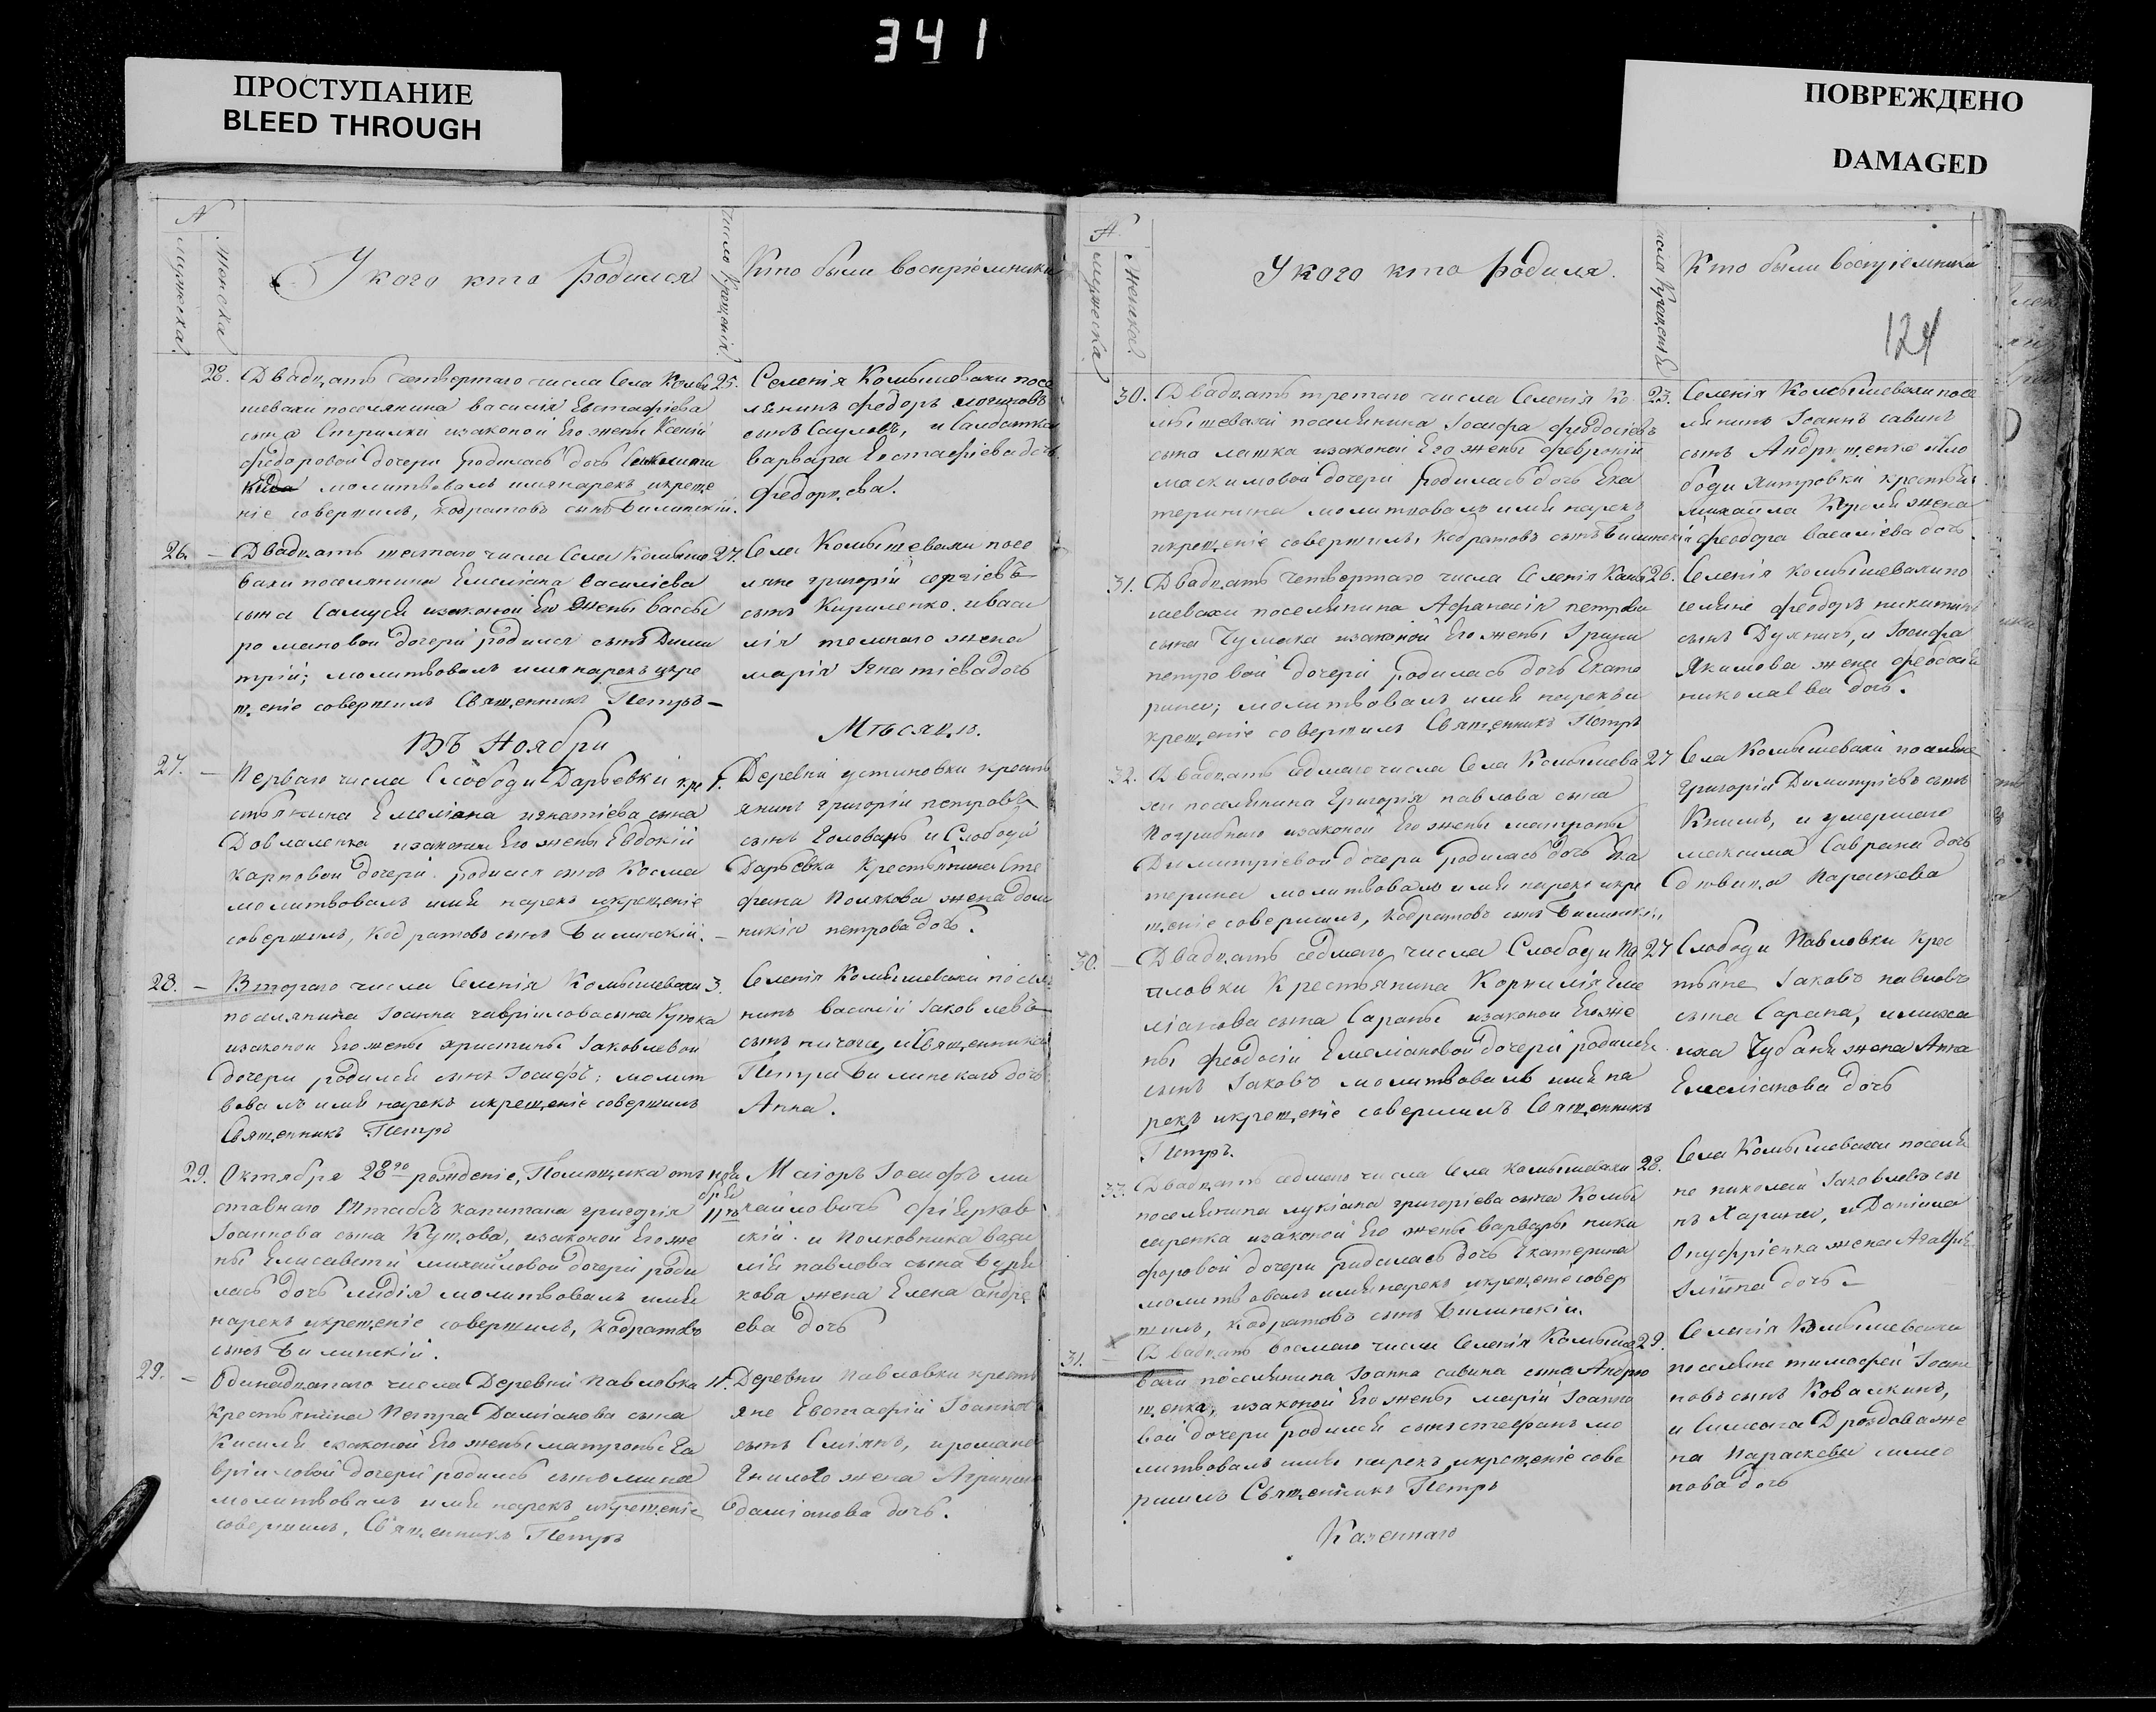 341
ПРОСТУПАНИЕ
BLEED THROUGH
ПОВРЕЖДЕНО
DAMAGED
N
мужеска.
женска
У кого кто родился
число крещенія
Кто были воспріемники
28. Двадцать четвертаго числа Села Комы 25.
шевахи поселянина василія Евстафіева
сына Стрилки изаконой Его жены Ксеніи
федоровой дочери родилась дочь
молитвовалъ имянарекъ икреще
ніе совершилъ, Кодратовъ сынъ Билинскій.
Селенія Комышевахи посе
лянинъ федоръ логиновъ
сынъ Сауловъ, и Салдатка
варвара Евстафіева дочь
26. – Двадцать шестаго числа Села Комыше 27.
вахи поселянина Емеліана василіева
сына Самуся изаконой Его жены вассы
романовой дочери родился сынъ Дими
трій; молитвовалъ имянарекъ икре
щеніе совершилъ Священникъ Петръ –
Села Комышевахи посе
ляне григорій сергіевъ
сынъ Кириленко. иваси
лія темнаго жена
марія Игнатіева дочь
Въ Ноябри
Мѣсяцѣ.
27. – Перваго числа Слободи Дарьевки кре 1.
стьянина Емеліана игнатіева сына
Довгаленка изаконой Его жены Евдокіи
карповой дочери родился сынъ Косма
молитвовалъ имя нарекъ икрещеніе
совершилъ, Кодратовъ сынъ Билинскій. –
Деревни устиновки кресть
янинъ григорій петровъ
сынъ Головань и Слободи
Дарьевка Крестьянина Сте
фана Полякова жена дом
никія петрова дочь.
28. – Втораго числа Селенія Комышевахи 3.
поселянина Іоанна гавріилова сына Кутока
изаконой Его жены христины Іаковлевой
дочери родился сынъ Іосифъ; молит
вовалъ имя нарекъ икрещеніе совершилъ
Священникъ Петръ
Селенія Комышевахи поселя
нинъ василій Іаковлевъ
сынъ ничога, иСвященника
Петра Билинскаго дочь
Анна.
29. Октября 28го рожденіе, Помѣщика отъ ноя
бря
11го
ставнаго Штабсъ капитана григорія
Іоаннова сына Кутова, изаконой Его же
ны Елисаветы михайловой дочери роди
лась дочь лидія молитвовалъ имя
нарекъ икрещеніе совершилъ, Кодратовъ
сынъ Билинскій.
Маіоръ Іосифъ ми
хайловичъ
скій. и Полковника васи
лія павлова сына
кова жена Елена андре
ева дочь
29. – Одинадцатаго числа Деревни Павловка 11.
крестьянина Петра Даміанова сына
Кисиля изаконой Его жены матроны Га
вріиловой дочери родился сынъ мина
молитвовалъ имя нарекъ икрещеніе
совершилъ, Священникъ Петръ
Деревни Павловки кресть
яне Евстафій Іоаннов
сынъ Сміянъ, иромана
Гнилого жена Агрипина
даміанова дочь.
N
мужеска
женска.
У кого кто родился.
числа крещенія
Кто были воспріемники
124
30. Двадцать третаго числа Селенія Ко 23.
мышевахи поселянина Іосифа феодосіевъ
сына лашка изаконой Его жены февроніи
максимовой дочери родилась дочь Ека
терина молитвовалъ имя нарекъ
икрещеніе совершилъ, Кодратовъ сынъ Билинскій
Селенія Комышевахи посе
лянинъ Іоаннъ савинъ
сынъ Андрющенко иСло
боди хитровки крестья
михайла жена
феодора василіева дочь
31. Двадцать четвертаго числа Селенія Комы 26.
шевахи поселянина Афанасія петрова
сына Чумака изаконой Его жены Ірини
петровой дочери родилась дочь Екате
рина; молитвовалъ имя нарекъ и
крещеніе совершилъ Священникъ Петръ
Селенія комышевахи по
селяне феодоръ никитинъ
сынъ Дуяничъ, и Іосифа
Якимова жена феодосія
николаева дочь.
32. Двадцать седмаго числа Села Комышева 27
хи поселянина Григорія павлова сына
Погрибнаго изаконой Его жены матроны
Димитріевой дочери родилась дочь Ека
терина молитвовалъ имя нарекъ икре
щеніе совершилъ, Кодратовъ сынъ Билинскій
Села Комышевахи поселяне
григорій Димитріевъ сынъ
Книшъ, и умершаго
максима Саврана дочь
дѣвица Параскева
30. – Двадцать седмаго числа Слободи Па 27
вловки Крестьянина Корнилія Еме
ліанова сына Сарапы изаконой Его же
ны феодосіи Емеліановой дочери родился
сынъ Іаковъ молитвовалъ имя на
рекъ икрещеніе совершилъ Священникъ
Петръ.
Слободи Павловки Крес
тьяне Іаковъ павловъ
сына Сарапа, имиха
ила Чубаня жена Анна
Емеліанова дочь
33. Двадцать седмаго числа Села комышевахи 28.
поселянина лукіана григоріева сына Комы
саренка изаконой Его жены варвары ники
форовой дочери родилась дочь Екатерина
молитвовалъ имя нарекъ икрещеніе совер
шилъ, Кодратовъ сынъ Билинскій.
Села Комышевахи поселя
не николай Іаковлевъ сы
нъ Харина, и Даніила
Онуфріенка жена Агафія
дочь –
31. – Двадцать восмаго числа Селенія Комыше 29.
вахи поселянина Іоанна савина сына Андрю
щенка, изаконой Его жены маріи Іоанно
вой дочери родился сынъ стефанъ мо
литвовалъ имя нарекъ икрещеніе сове
ршилъ Священникъ Петръ
Селенія Комышевахи
поселяне тимофей Іоан
новъ сынъ Ковалкинъ,
и Симеона Дроздова же
на Параскева симео
нова дочь
Казеннаго